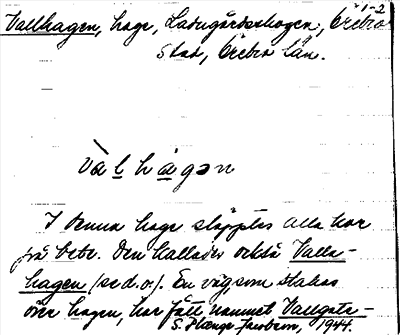 1-2
Vallhagen, hage, Ladugårdsskogen, Örebro
stad, Örebro län.
val hagən
I denna hage släpptes alla kor
på bete. Den kallades också Valla-
hagen (se d.o.). En väg som stakas
över hagen, har fått namnet Vallgata-
S. 1944.